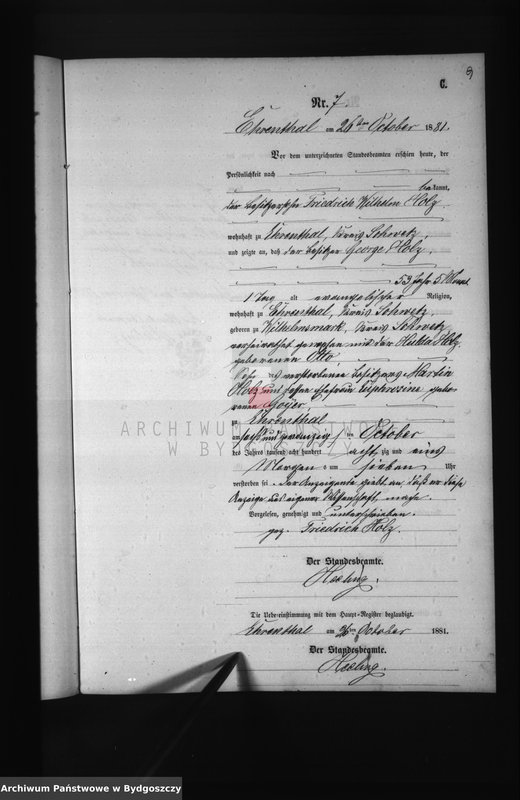 9
C.
Nr. 7.
Ehrenthal am 26ten October 1881.
Vor dem unterzeichneten Standesbeamten erschien heute, der
Persönlichkeit nach
bekannt,
der Besitzersohn Friedrich Wilhelm Holz
wohnhaft zu Ehrenthal, Kreis Schwetz,
und zeigte an, daß der Besitzer George Holz,
53 Jahr 5 Monat
1 Tag alt evangelischer Religion,
wohnhaft zu Ehrenthal, Kreis Schwetz,
geboren zu Wilhelmsmark, Kreis Schwetz
verheirathet gewesen mit der Holz
geborenen Otto
Sohn des verstorbenen Besitzers Martin
Holz und dessen Ehefrau Euphrosine gebo-
renen
zu Ehrenthal
am und zwanzig ten October
des Jahres tausend acht hundert acht zig und eins
Morgens um sieben Uhr
verstorben sei. Der Anzeigende giebt an, daß er diese
Anzeige aus eigener Wissenschaft mache.
Vorgelesen, genehmigt und unterschrieben.
gez. Friedrich Holz.
Der Standesbeamte.
Die Uebereinstimmung mit dem Haupt-Register beglaubigt.
Ehrenthal am 26ten October 1881.
Der Standesbeamte.
ARCHIWUM PAŃSTWOWE
W BYDGOSZCZY
Archiwum Państwowe w Bydgoszczy
Archiwum Państwowe w Bydgoszczy